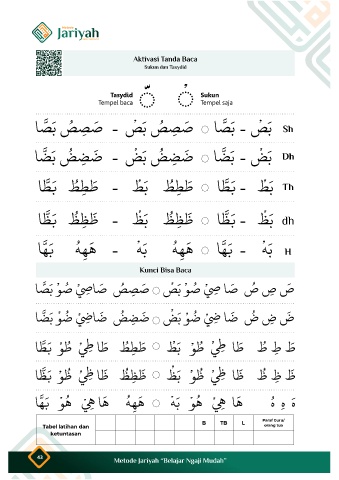 Jariyah
Aktivasi Tanda Baca
Sukun dan Tasydid
Tasydid
Tempel baca
Sukun
Tempel saja
Sh بَصْ - بَصَّا ○ صَصِصُ بَصْ - صَصِصُ بَصَّا
Dh بَضْ - بَضَّا ○ ضَضِضُ بَضْ - ضَضِضُ بَضَّا
Th بَطْ - بَطَّا ○ طَطِطُ بَطْ - طَطِطُ بَطَّا
dh بَظْ - بَظَّا ○ ظَظِظُ بَظْ - ظَظِظُ بَظَّا
H بَهْ - بَهَّا ○ هَهِهُ بَهْ - هَهِهُ بَهَّا
Kunci Bisa Baca
صَ صِ صُ صَا صِيْ صُوْ بَصْ ○ صَصِصُ صَاصِيْ صُوْ بَصَّا
ضَ ضِ ضُ ضَا ضِيْ ضُوْ بَضْ ○ ضَضِضُ ضَاضِيْ ضُوْ بَضَّا
طَ طِ طُ طَا طِيْ طُوْ بَطْ ○ طَطِطُ طَا طِيْ طُوْ بَطَّا
ظَ ظِ ظُ ظَا ظِيْ ظُوْ بَظْ ○ ظَظِظُ ظَا ظِيْ ظُوْ بَظَّا
هَ هِ هُ هَا هِيْ هُوْ بَهْ ○ هَهِهُ هَا هِيْ هُوْ بَهَّا
Tabel latihan dan ketuntasan
B TB L
Paraf Guru/ orang tua
42
Metode Jariyah "Belajar Ngaji Mudah"